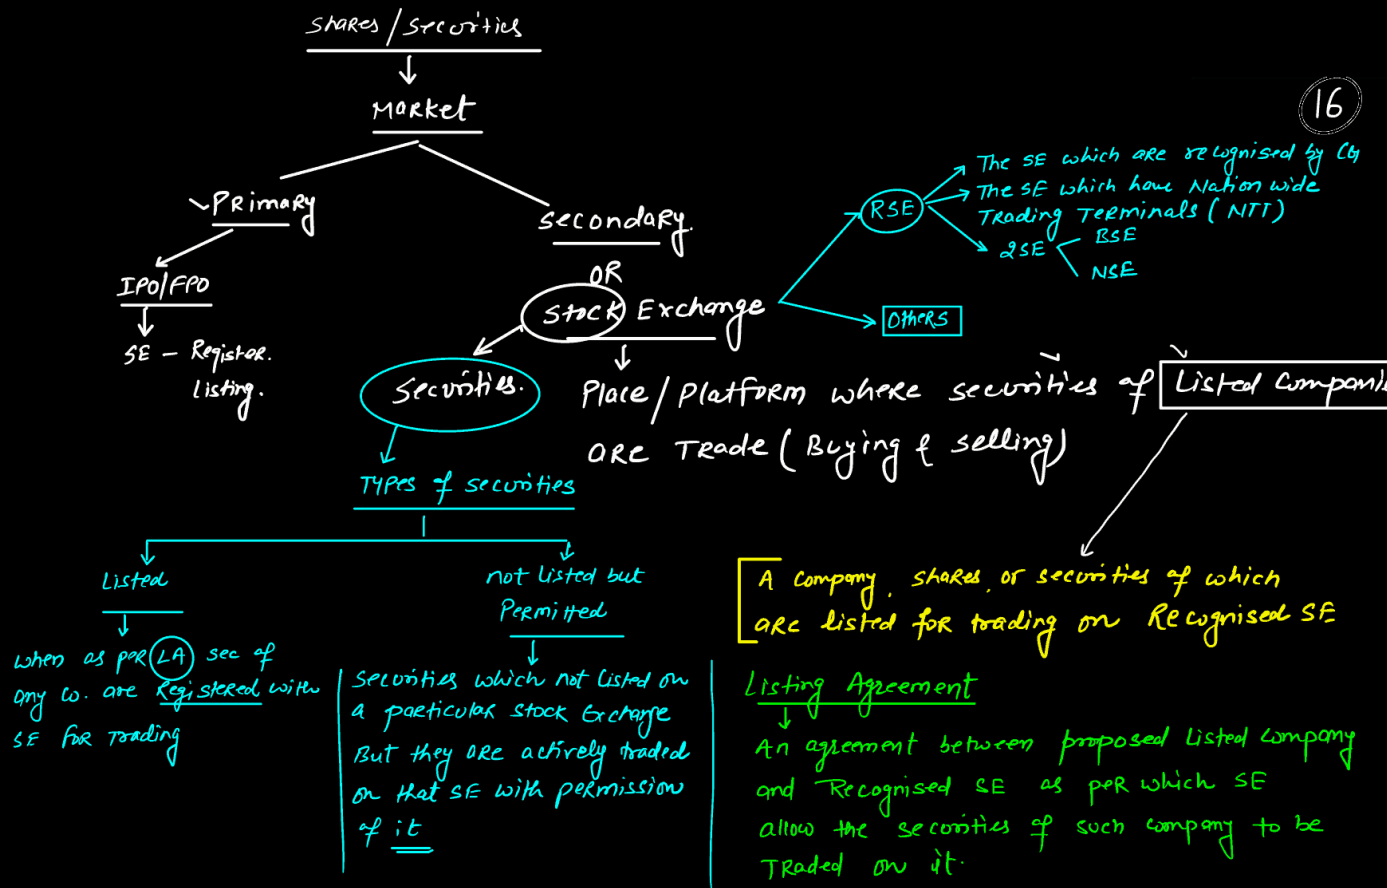 Shares/Securities
Market
16
Primary
Secondary
OR
Stock Exchange
IPO/FPO
SE - Register.
Listing.
RSE
The SE which are recognised by CG
The SE which have Nation wide
Trading Terminals (NTT)
2SE
BSE
NSE
Others
Securities.
Place/Platform where securities of Listed Companie
are Trade (Buying & Selling)
Types of securities
Listed
when as per LA sec of
any Co. are Registered with
SE for Trading
not Listed but
Permitted
Securities which not Listed on
a particular Stock Exchange
But they are actively traded
on that SE with permission
of it
A company, shares, or securities of which
are listed for trading on Recognised SE
Listing Agreement
An agreement between proposed Listed company
and Recognised SE as per which SE
allow the securities of such company to be
Traded on it.